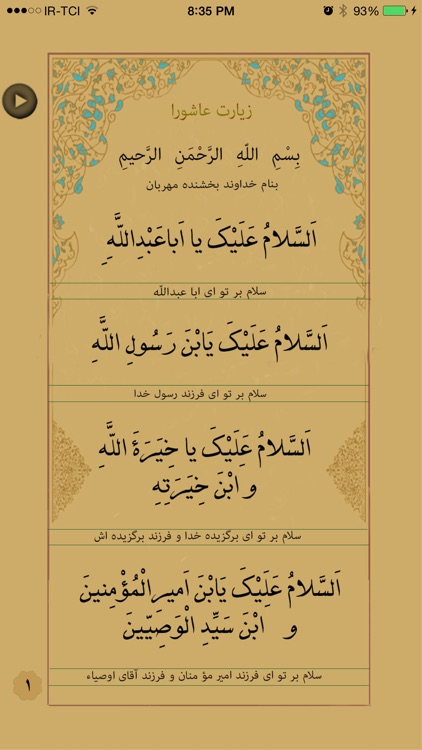 IR-TCI 8:35 PM 93%
زیارت عاشورا
بِسْمِ اللهِ الرَّحْمَنِ الرَّحیمِ
بنام خداوند بخشنده مهربان
اَلسَّلامُ عَلَیْکَ یا اَباعَبْدِاللَّهِ
سلام بر تو ای ابا عبدالله
اَلسَّلامُ عَلَیْکَ یَابْنَ رَسُولِ اللَّهِ
سلام بر تو ای فرزند رسول خدا
اَلسَّلامُ عَلَیْکَ یا خِیَرَةَ اللَّهِ
و ابْنَ خِیَرَتِهِ
سلام بر تو ای برگزیده خدا و فرزند برگزیده اش
اَلسَّلامُ عَلَیْکَ یَابْنَ اَمیرِالْمُؤْمِنینَ
و ابْنَ سَیِّدِ الْوَصِیّینَ
سلام بر تو ای فرزند امیر مؤ منان و فرزند آقای اوصیاء
۱